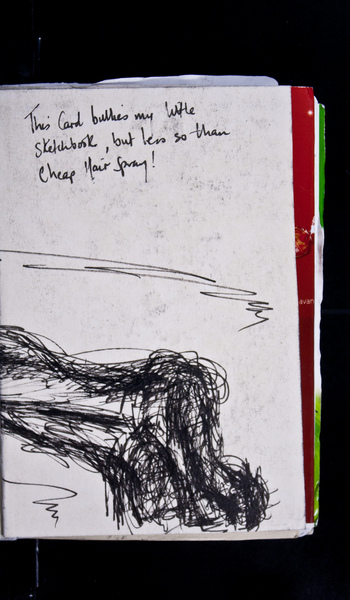 This Card bullies my little
Sketchbook, but less so than
Cheap Hair Spray!
avan